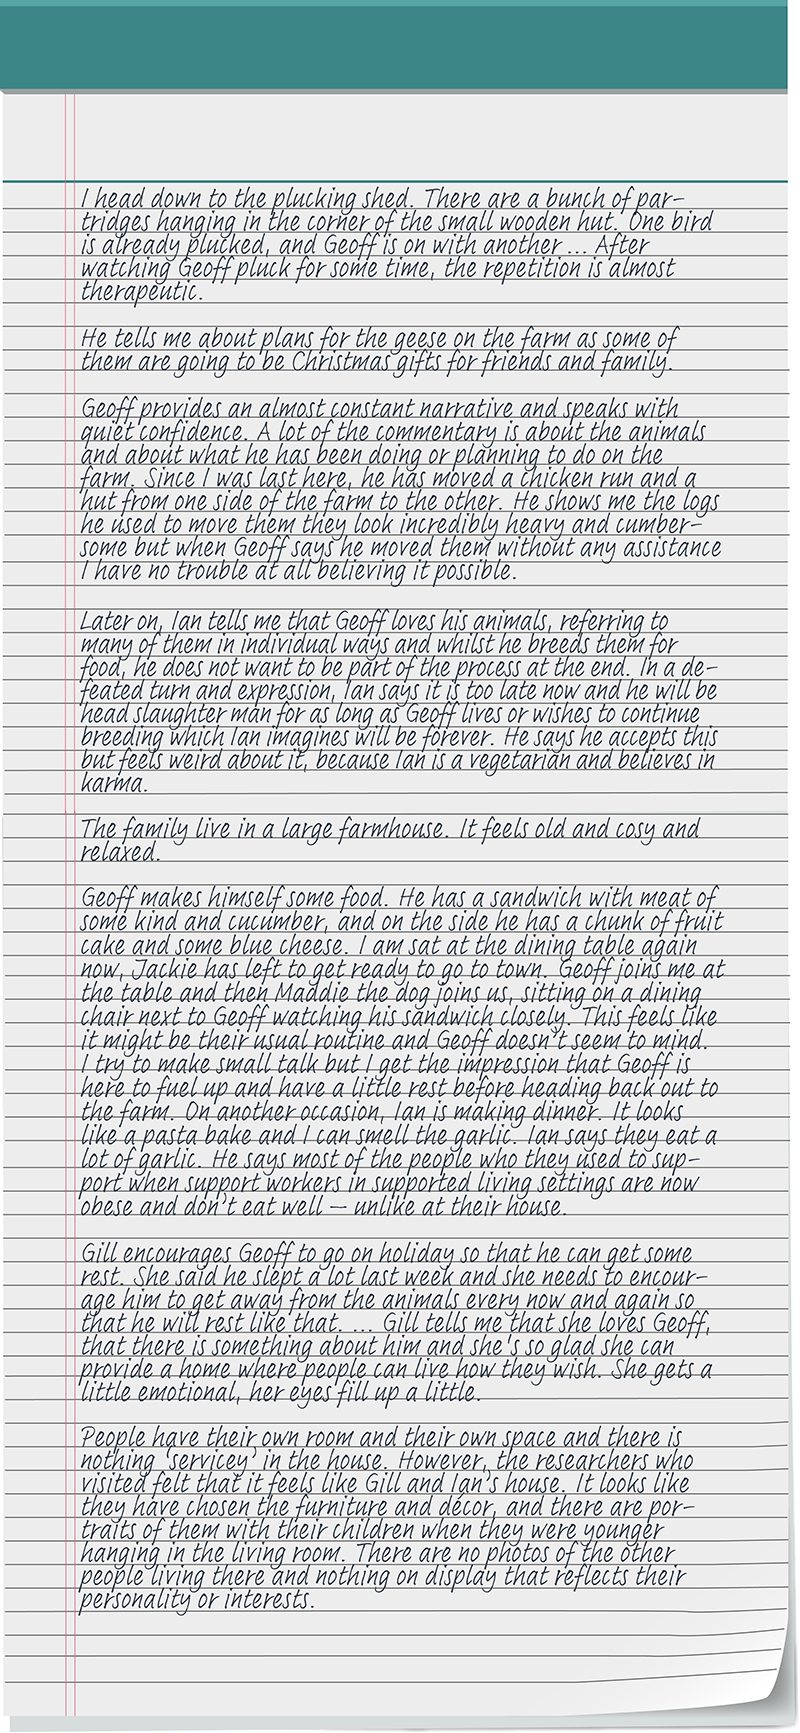 I head down to the plucking shed. There are a bunch of par-
tridges hanging in the corner of the small wooden hut. One bird
is already plucked, and Geoff is on with another ... After
watching Geoff pluck for some time, the repetition is almost
therapeutic.
He tells me about plans for the geese on the farm as some of
them are going to be Christmas gifts for friends and family.
Geoff provides an almost constant narrative and speaks with
quiet confidence. A lot of the commentary is about the animals
and about what he has been doing or planning to do on the
farm. Since I was last here, he has moved a chicken run and a
hut from one side of the farm to the other. He shows me the logs
he used to move them they look incredibly heavy and cumber-
some but when Geoff says he moved them without any assistance
I have no trouble at all believing it possible.
Later on, Ian tells me that Geoff loves his animals, referring to
many of them in individual ways and whilst he breeds them for
food, he does not want to be part of the process at the end. In a de-
feated turn and expression, Ian says it is too late now and he will be
head slaughter man for as long as Geoff lives or wishes to continue
breeding which Ian imagines will be forever. He says he accepts this
but feels weird about it, because Ian is a vegetarian and believes in
karma.
The family live in a large farmhouse. It feels old and cosy and
relaxed.
Geoff makes himself some food. He has a sandwich with meat of
some kind and cucumber, and on the side he has a chunk of fruit
cake and some blue cheese. I am sat at the dining table again
now, Jackie has left to get ready to go to town. Geoff joins me at
the table and then Maddie the dog joins us, sitting on a dining
chair next to Geoff watching his sandwich closely. This feels like
it might be their usual routine and Geoff doesn't seem to mind.
I try to make small talk but I get the impression that Geoff is
here to fuel up and have a little rest before heading back out to
the farm. On another occasion, Ian is making dinner. It looks
like a pasta bake and I can smell the garlic. Ian says they eat a
lot of garlic. He says most of the people who they used to sup-
port when support workers in supported living settings are now
obese and don't eat well – unlike at their house.
Gill encourages Geoff to go on holiday so that he can get some
rest. She said he slept a lot last week and she needs to encour-
age him to get away from the animals every now and again so
that he will rest like that. ... Gill tells me that she loves Geoff,
that there is something about him and she's so glad she can
provide a home where people can live how they wish. She gets a
little emotional, her eyes fill up a little.
People have their own room and their own space and there is
nothing 'servicey' in the house. However, the researchers who
visited felt that it feels like Gill and Ian's house. It looks like
they have chosen the furniture and décor, and there are por-
traits of them with their children when they were younger
hanging in the living room. There are no photos of the other
people living there and nothing on display that reflects their
personality or interests.